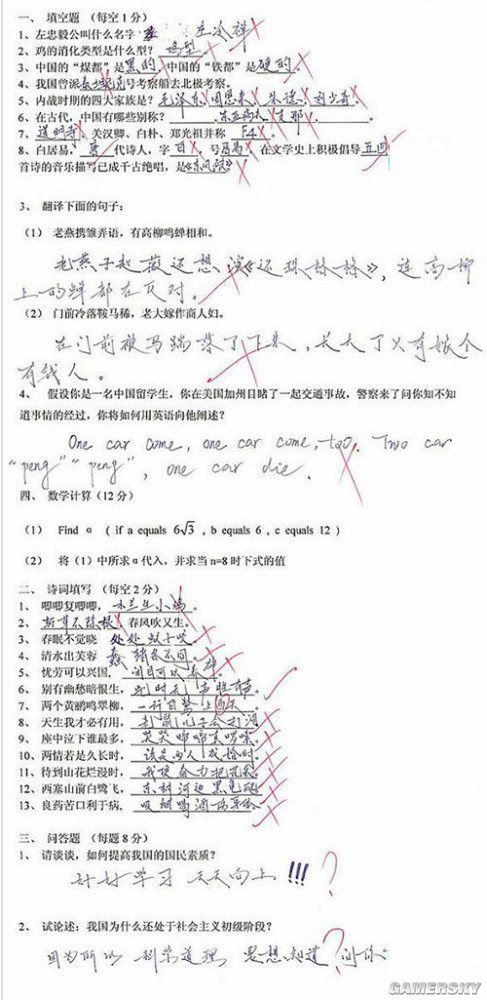 一、 填空题 (每空1分)
1、左忠毅公叫什么名字? 左冷禅
2、鸡的消化类型是什么型? 鸡型
3、中国的“煤都”是黑的,中国的“铁都”是硬的。
4、我国曾派泰坦尼克号考察船去北极考察。
5、内战时期的四大家族是? 毛泽东、周恩来、朱德、刘少奇。
6、在古代,中国有哪些别称? 东亚病夫、支那。
7、道明寺、关汉卿、白朴、郑光祖并称 F4。
8、白居易, 代诗人,字 ,号 。在文学史上积极倡导五四
首诗的音乐描写已成千古绝唱,是《东风破》
3、 翻译下面的句子:
(1) 老燕携雏弄语,有高柳鸣蝉相和。
老燕子赵薇还想演《还珠格格》,连高柳
上的蝉都在反对。
(2) 门前冷落鞍马稀,老大嫁作商人妇。
在门前被马踹落了下来,长大了又有嫁个
有钱人。
4、 假设你是一名中国留学生,你在美国加州目睹了一起交通事故,警察来了问你知不知
道事情的经过,你将如何用英语向他阐述?
One car come, one car come, too. Two car
“peng” “peng”, one car die.
四、 数学计算(12分)
(1) Find α ( if a equals 6√3 , b equals 6 , c equals 12 )
(2) 将(1)中所求α代入,并求当n=8时下式的值
二、 诗词填写 (每空2分)
1、 唧唧复唧唧,木兰生小鸡。
2、 斩草不除根,春风吹又生。
3、 春眠不觉晓 处处蚊子咬。
4、 清水出芙蓉
5、 忧劳可以兴国,闭目可以养神
6、 别有幽愁暗恨生,此时无声胜有声。
7、 两个黄鹂鸣翠柳,一行白鹭上西天。
8、 天生我才必有用,老鼠儿子会打洞
9、 座中泣下谁最多,
10、两情若是久长时,该是两人成婚时。
11、待到山花烂漫时,我便奋力把花采。
12、西塞山前白鹭飞,东村河边黑龟爬
13、良药苦口利于病,吸烟喝酒伤身体。
三、 问答题 (每题8分)
1、 请谈谈,如何提高我国的国民素质?
好好学习 天天向上!!!
2、 试论述:我国为什么还处于社会主义初级阶段?
因为所以 科学道理 思想知道 问你
GAMERSKY